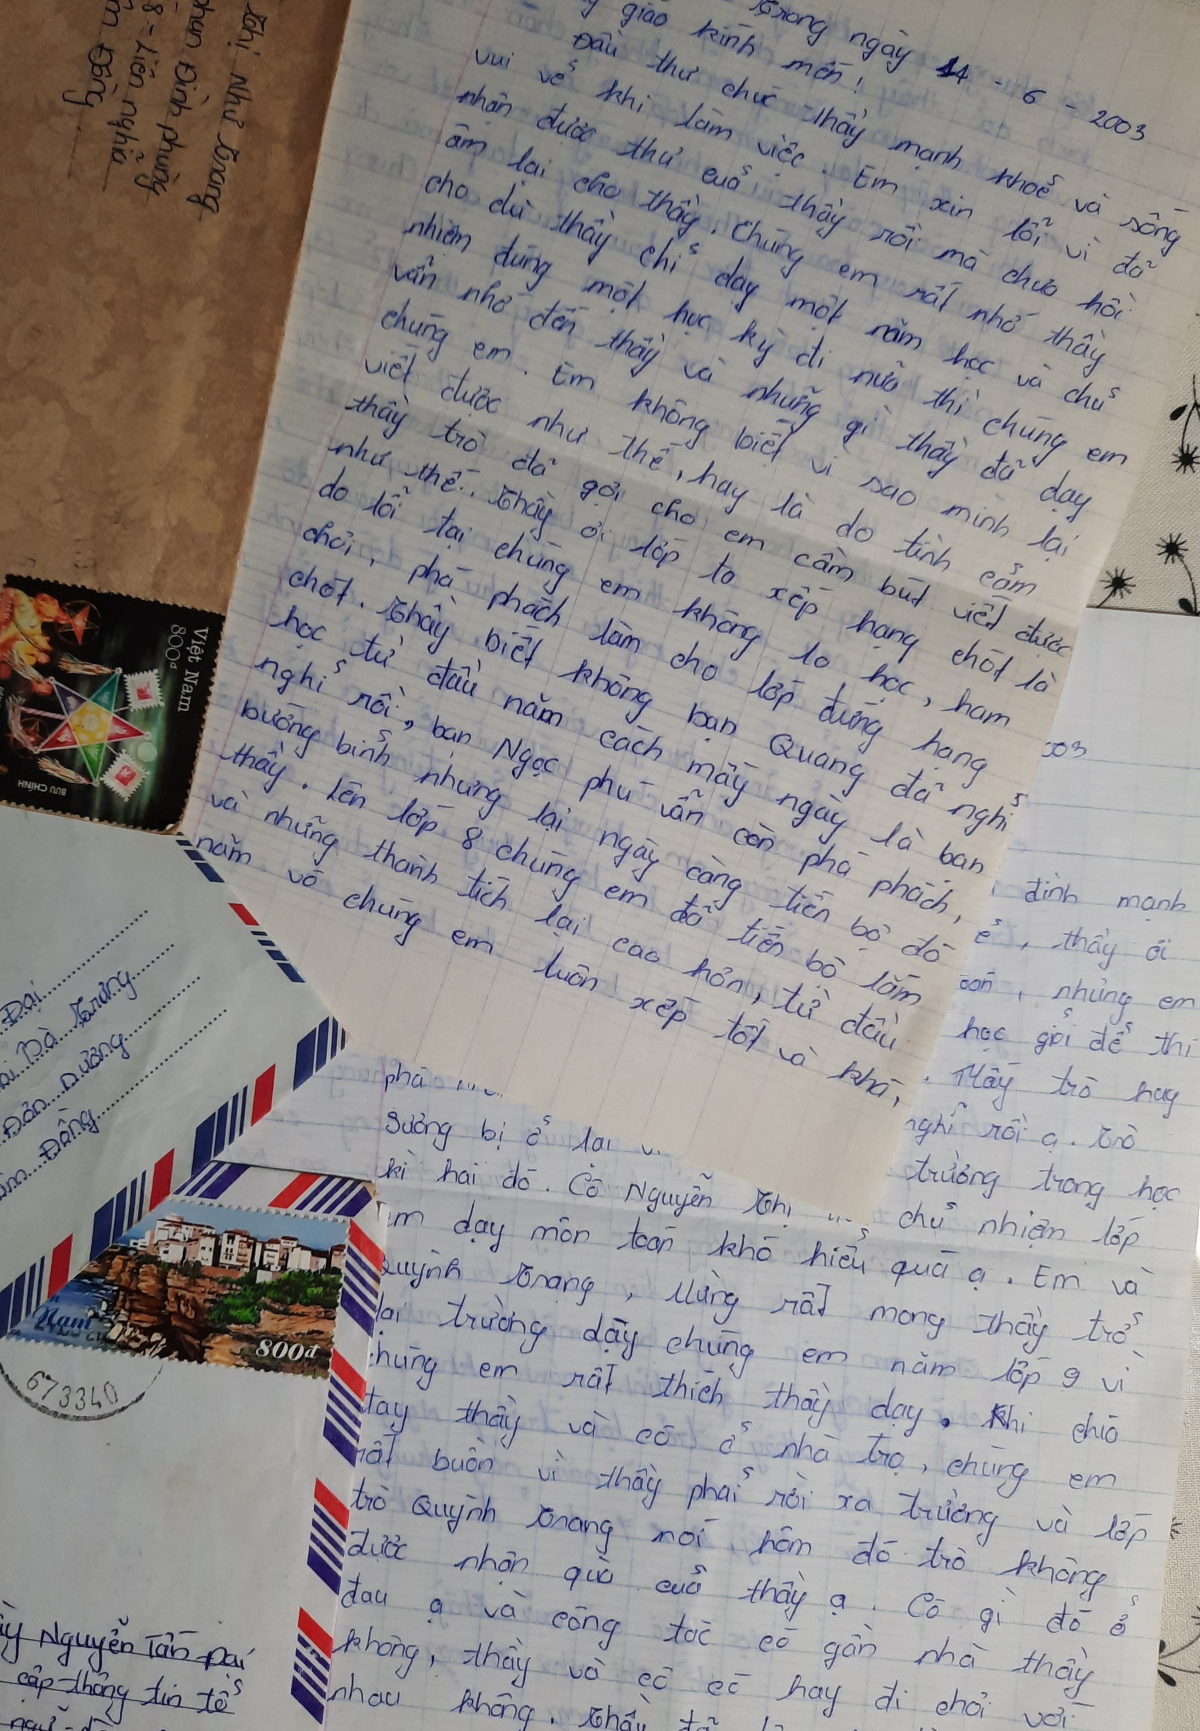 Thị Như Trang
Phan Đình Phùng
8 - Liên nghĩa
Đồng
Trang ngày 14 - 6 - 2003
giáo kính mến!
Đầu thư chúc thầy mạnh khoẻ và sống
vui vẻ khi làm việc. Em xin lỗi vì đã
nhận được thư của thầy rồi mà chưa hồi
âm lại cho thầy. Chúng em rất nhớ thầy
cho dù thầy chỉ dạy một năm học và chủ
nhiệm đúng một học kỳ đi nữa thì chúng em
vẫn nhớ đến thầy và những gì thầy đã dạy
chúng em. Em không biết vì sao mình lại
viết được như thế, hay là do tình cảm
thầy trò đã gợi cho em cầm bút viết được
như thế. Thầy ơi lớp ta xếp hạng chót là
do lỗi tại chúng em không lo học, ham
chơi, phá phách làm cho lớp đứng hạng
chót. Thầy biết không bạn Quang đã nghỉ
học từ đầu năm cách mấy ngày là bạn
nghỉ rồi, bạn Ngọc phú vẫn còn phá phách,
bướng bỉnh nhưng lại ngày càng tiến bộ đó
thầy. Lên lớp 8 chúng em đã tiến bộ lắm
và những thành tích lại cao hơn, từ đầu
năm vô chúng em luôn xếp tốt và khá,
Việt Nam
800đ
BƯU CHÍNH
Đại
Bà Trưng
Đơn Dương
Đồng
Nam
800đ
673340
Nguyễn Tấn Đại
cấp thông tin tế
003
đình mạnh
, thầy ơi
toán, nhưng em
học giỏi để thi
. Mấy trò hay
phá
nghĩ rồi ạ. Trò
Sương bị ở lại
trường trong học
kì hai đó. Cô Nguyễn Thị
chủ nhiệm lớp
em dạy môn toán khó hiểu quá ạ. Em và
Quỳnh Trang, Mừng rất mong thầy trở
lại trường dậy chúng em năm lớp 9 vì
chúng em rất thích thầy dạy. Khi chia
tay thầy và cô ở nhà trọ, chúng em
rất buồn vì thầy phải rời xa trường và lớp
trò Quỳnh Trang nói hôm đó trò không
được nhận quà của thầy ạ. Cô gì đó ở
đau ạ và công tác có gần nhà thầy
không, thầy và cô có hay đi chơi với
nhau không. Thầy